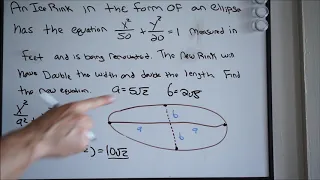 An Ice Rink in the form of an ellipse
has the equation x²/50 + y²/20 = 1 measured in
feet and is being renovated. The new Rink will
have Double the width and double the length. Find
the new equation. a = 5√2 b = 2√5
x²/a² +
b
a a
b
) = 10√2